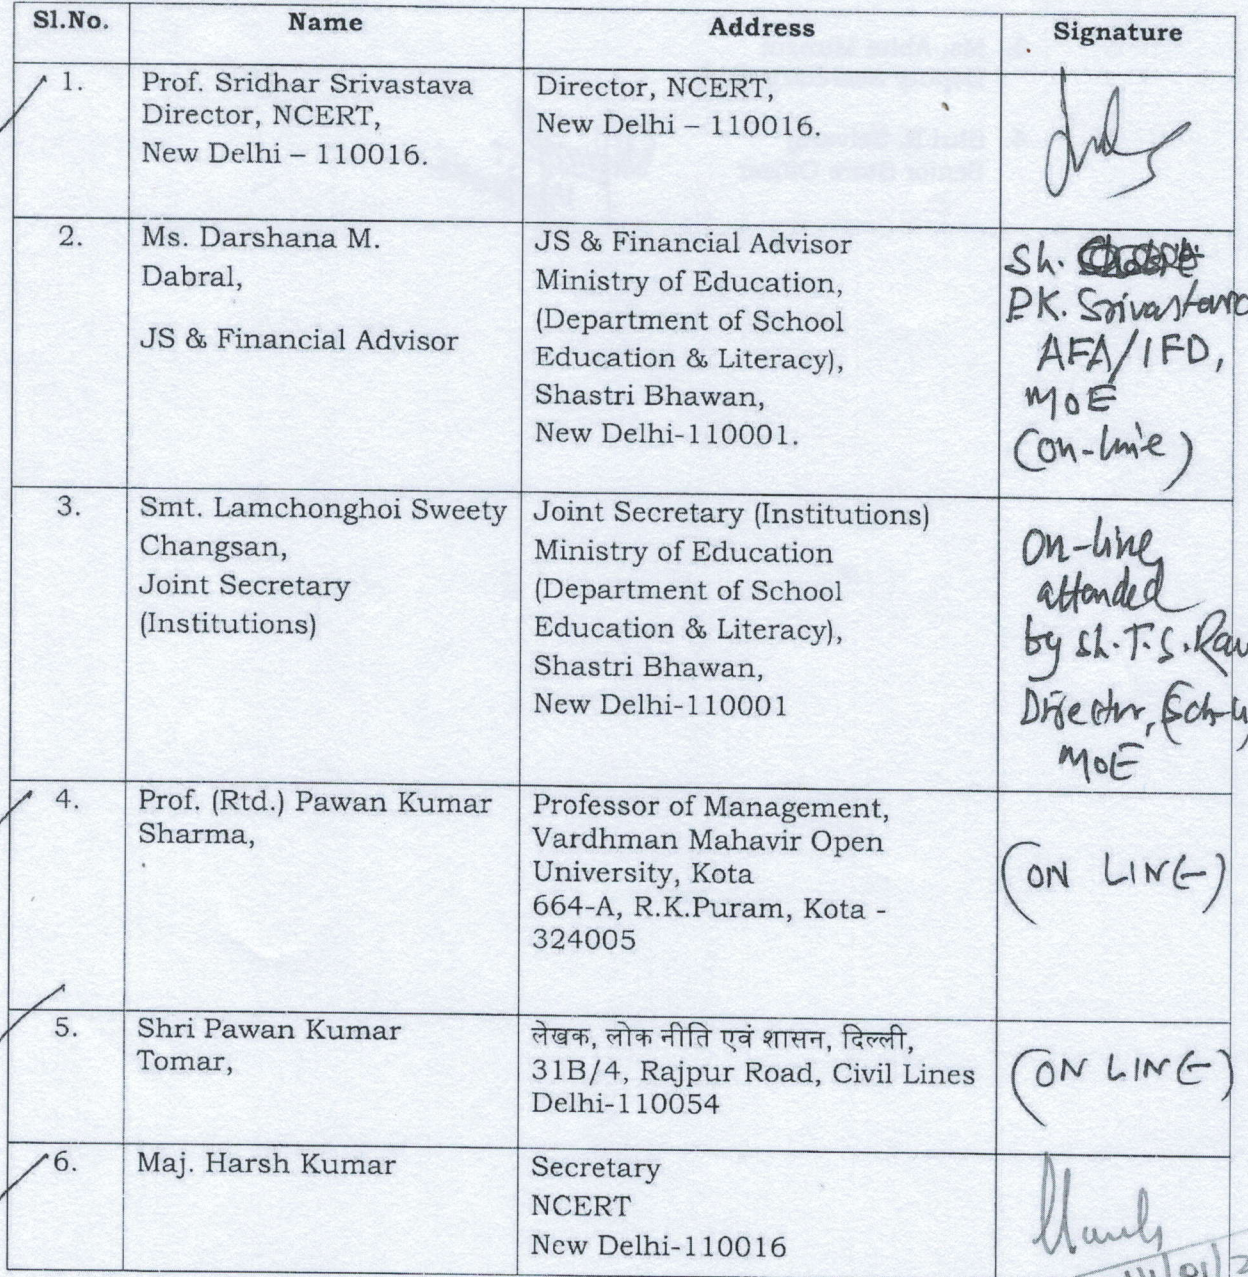 Sl.No. Name Address Signature
1. Prof. Sridhar Srivastava
Director, NCERT,
New Delhi – 110016.
Director, NCERT,
New Delhi – 110016.
2. Ms. Darshana M.
Dabral,
JS & Financial Advisor
JS & Financial Advisor
Ministry of Education,
(Department of School
Education & Literacy),
Shastri Bhawan,
New Delhi-110001.
Sh.
P.K. Srivastava
AFA/IFD,
MoE
(on-line)
3. Smt. Lamchonghoi Sweety
Changsan,
Joint Secretary
(Institutions)
Joint Secretary (Institutions)
Ministry of Education
(Department of School
Education & Literacy),
Shastri Bhawan,
New Delhi-110001
On-line,
attended
by Sh. T.S.
Director,
MoE
4. Prof. (Rtd.) Pawan Kumar
Sharma,
Professor of Management,
Vardhman Mahavir Open
University, Kota
664-A, R.K.Puram, Kota -
324005
(ON LINE)
5. Shri Pawan Kumar
Tomar,
लेखक, लोक नीति एवं शासन, दिल्ली,
31B/4, Rajpur Road, Civil Lines
Delhi-110054
(ON LINE)
6. Maj. Harsh Kumar
Secretary
NCERT
New Delhi-110016